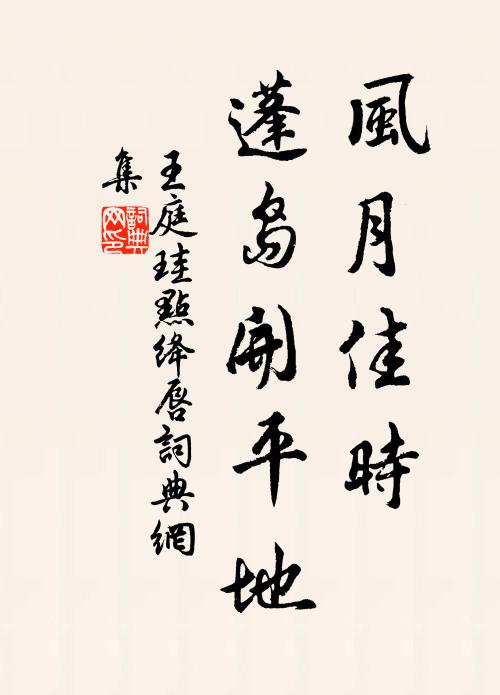 風月佳時
蓬島開平地
王庭珪點絳唇詞典網
集
詞典網印